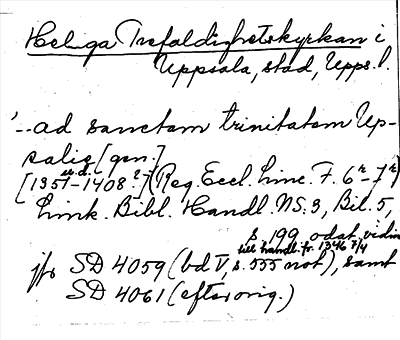 Helga Trefaldighetskyrkan i
Uppsala, stad, Upps. l.
'--ad sanctam trinitatem Up-
salie [gen.]
[1351 - 1408 ?] (Reg. Eccl. Linc. F. 6r - 7r)
Link. Bibl. Handl. NS: 3, Bil. 5,
s. 199 odat. vidim
till handl. fr. 1346 7/4
jfr SD 4059 (bd V, s. 555 not), samt
SD 4061 (efter orig.)